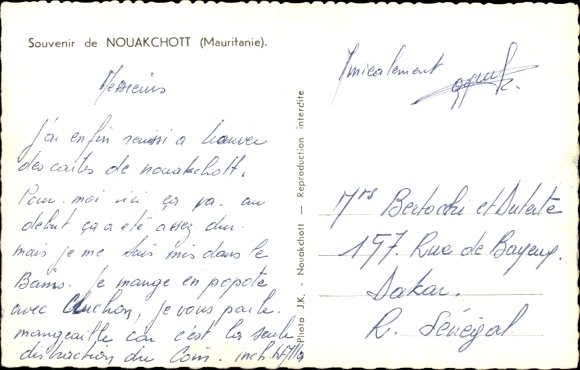 Souvenir de NOUAKCHOTT (Mauritanie).
Messieurs
J'ai enfin reussi a trouver
des cartes de nouakchott.
Pour moi ici ça va. au
debut ça a été assez dur.
mais je me suis mis dans le
Bains. je mange en popote
avec Cluchon, je vous parle
mangeaille car c'est la seule
distraction du Coin.
Photo J.K. - Nouakchott — Reproduction interdite
Amicalement
Mrs Bertochi et Duterte
157. Rue de Bayeux.
Dakar.
R. Sénégal